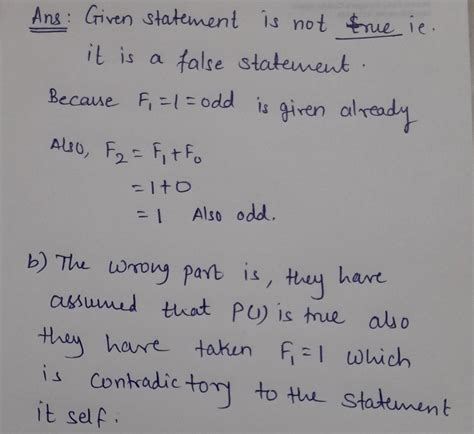 Ans: Given statement is not true ie.
it is a false statement.
Because F₁ = 1 = odd is given already
Also, F₂ = F₁ + F₀
= 1 + 0
= 1 Also odd.
b) The wrong part is, they have
assumed that P(1) is true also
they have taken F₁ = 1 which
is contradictory to the statement
it self.